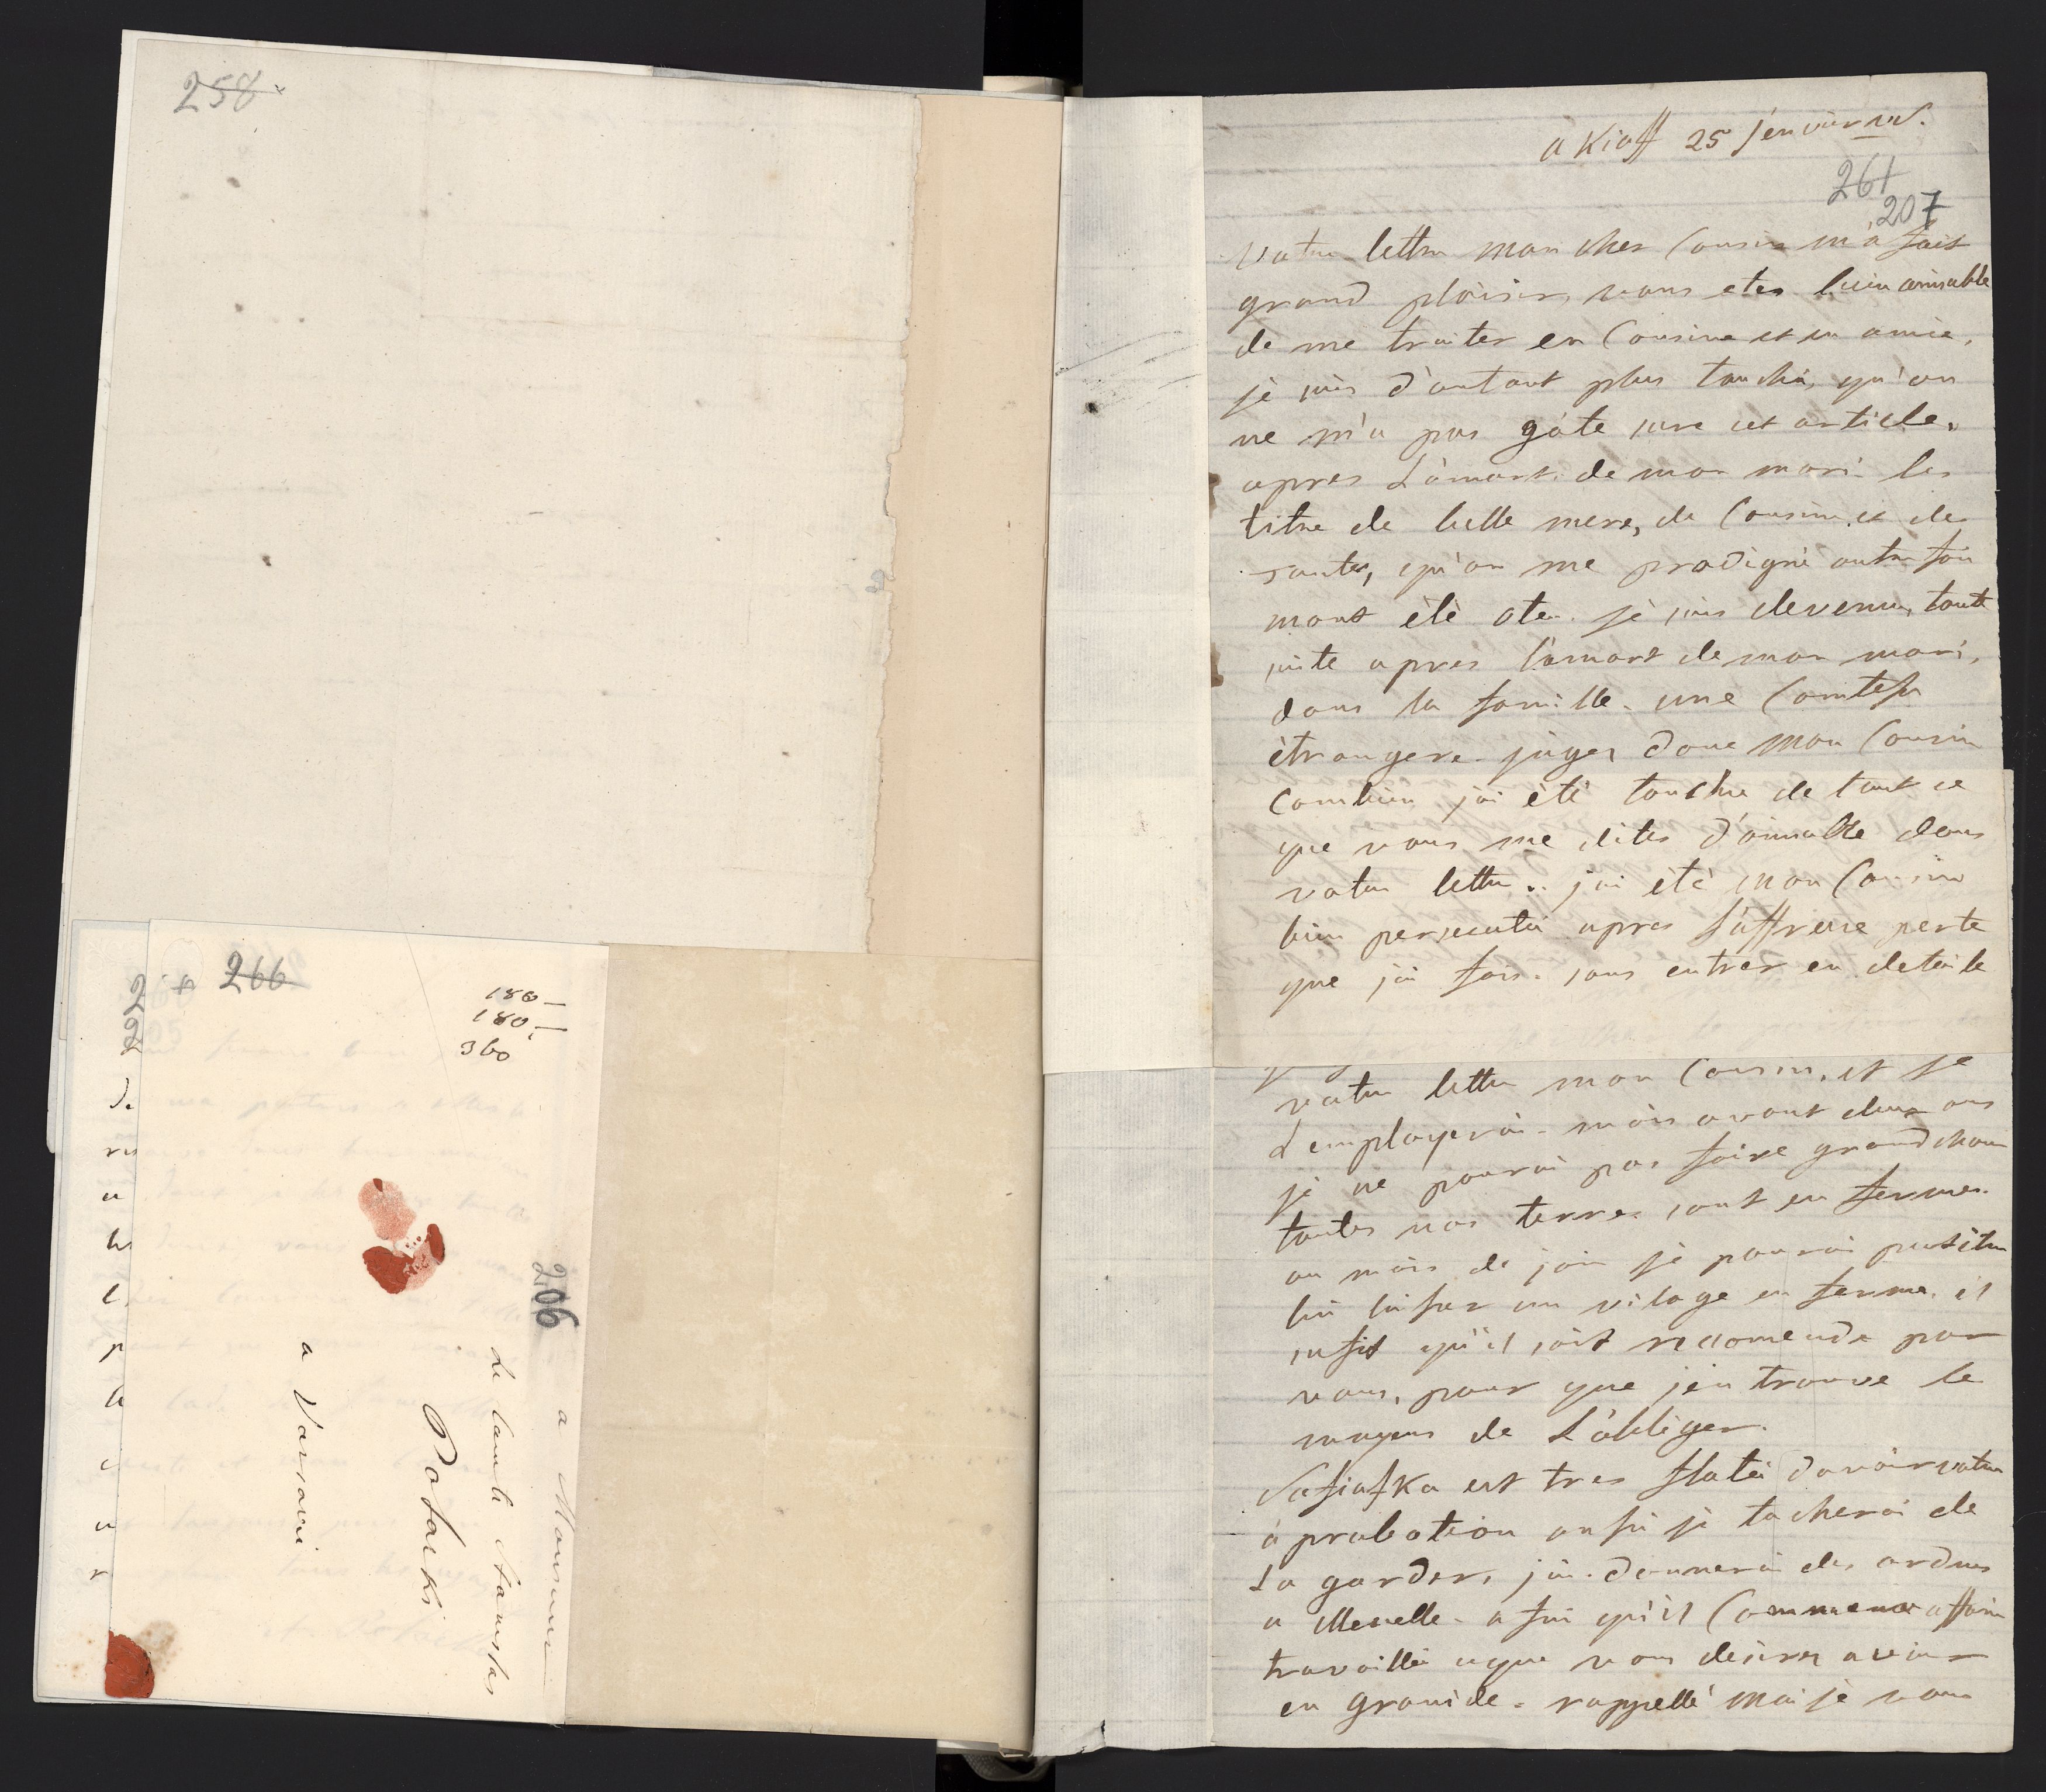 258
266
180
180
360
206
a Monsieur
Le Comte Stanislas
Potocki
a Varsovie
a Kioff 25 jenvier vs.
261
207
Votre lettre mon cher Cousin m'a fait
grand plaisir, vous etes bien aimable
de me traiter en Cousine et en amie,
jè suis d'autant plus touchée, qu'on
ne m'a pas gàte sure cet article.
apres Làmort de mon mari les
titre de belle mere, de Cousine, et de
tante, qu'on me prodigué autre fois
mont èlè ote. jè suis devenue, tout
suite apres làmort de mon mari,
dans la famille une Comtesse
ètrangere. jugez donc mon Cousin
Combien j'ai été touchee de tout ce
que vous me dites d'aimable dans
votre lettre. j'ai étè mon Cousin
bien persecutée apres l'affreuse perte
que j'ai fais. sans entrer en detaile
votre lettre mon Cousin, et je
L'employerai. mais avant deux ans
jè ne pourai pas faire grand chose
toutes nos terres sont en fermes.
au mois de join jè pourai peutetre
lui laisser un vilage en ferme. il
sufit qu'il soit recomende par
vous, pour que j'en trouve le
moyens de L'obliger.
Sofiofka est tres flatée davoir votre
àprobation aussi jè tacherai de
La garder, j'ai donnerai des ordres
a Metzelle afin qu'il Commence affaire
travaillé aque vous desirez avoir
en granide. rappellé moi jè vous